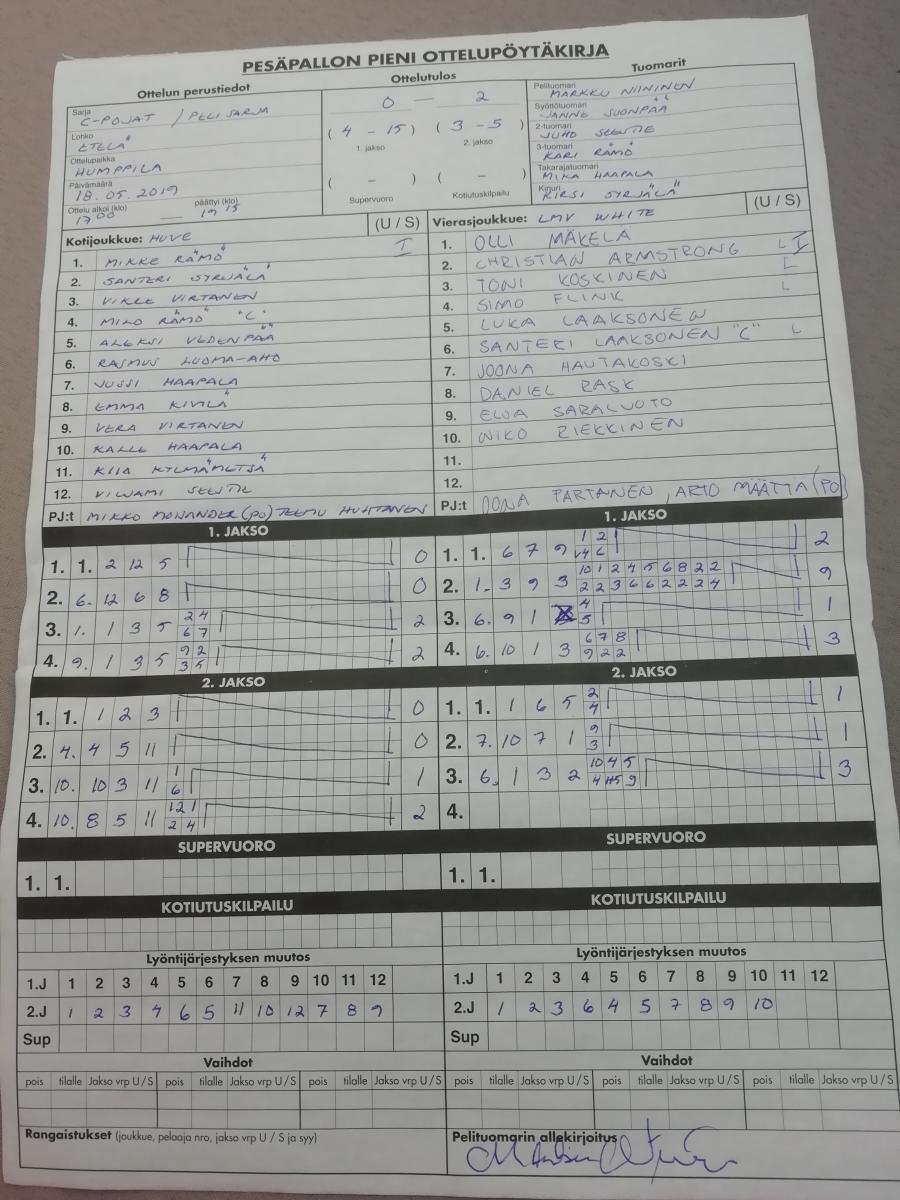 PESÄPALLON PIENI OTTELUPÖYTÄKIRJA
Ottelun perustiedot
Ottelutulos
Tuomarit
Sarja
C-POJAT / PELISARJA
Lohko
ETELÄ
Ottelupaikka
HUMPPILA
Päivämäärä
18.05.2019
Ottelu alkoi (klo) päättyi (klo)
17 00 — 19 15
0 — 2
( 4 - 15 ) ( 3 - 5 )
1. jakso 2. jakso
( - ) ( - )
Supervuoro Kotiutuskilpailu
Pelituomari
MARKKU NIININEN
Syöttötuomari
JANNE SUONPÄÄ
2-tuomari
JUHO SEESTIE
3-tuomari
KARI RÄMÖ
Takarajatuomari
MIKA HAAPALA
Kirjuri
KIRSI SYRJÄLÄ
Kotijoukkue: HUVE (U / S)
1. MIKKE RÄMÖ I
2. SANTERI SYRJÄLÄ
3. VIRTANEN
4. MIRO RÄMÖ "C"
5. ALEKSI VEDENPÄÄ
6. RASMUS LUOMA-AHO
7. JUSSI HAAPALA
8. EMMA KIVILÄ
9. VERA VIRTANEN
10. KALLE HAAPALA
11. KIIA KYLMÄMETSÄ
12. VILJAMI SEESTIE
PJ:t MIKKO MONANDER (PO) TEEMU HUHTANEN
Vierasjoukkue: LMV WHITE (U / S)
1. OLLI MÄKELÄ
2. CHRISTIAN ARMSTRONG L I
3. TONI KOSKINEN L
4. SIMO FLINK L
5. LUKA LAAKSONEN
6. SANTERI LAAKSONEN "C" L
7. JOONA HAUTAKOSKI
8. DANIEL RASK
9. ELJA SARALUOTO
10. NIKO RIEKKINEN
11.
12.
PJ:t OONA PARTANEN, ARTO MÄÄTTÄ (PO)
1. JAKSO
1. 1. 2 12 5 0
2. 6. 12 6 8 0
3. 1. 1 3 5 2 4 2
6 7
4. 9. 1 3 5 9 2 2
3 5
1. JAKSO
1. 1. 6 7 9 1 2 2
V4 6
2. 1. 3 9 3 10 1 2 4 5 6 8 2 2 9
2 2 3 6 6 2 2 2 4
3. 6. 9 1 4 1
5
4. 6. 10 1 3 6 7 8 3
9 2 2
2. JAKSO
1. 1. 1 2 3 0
2. 4. 4 5 11 0
3. 10. 10 3 11 1 1
6
4. 10. 8 5 11 12 1 2
2 4
2. JAKSO
1. 1. 1 6 5 2 1
4
2. 7. 10 7 1 9 1
3
3. 6. 1 3 2 10 4 5 3
4 5 9
4.
SUPERVUORO
1. 1.
SUPERVUORO
1. 1.
KOTIUTUSKILPAILU
KOTIUTUSKILPAILU
Lyöntijärjestyksen muutos
1.J 1 2 3 4 5 6 7 8 9 10 11 12
2.J 1 2 3 4 6 5 11 10 12 7 8 9
Sup
Lyöntijärjestyksen muutos
1.J 1 2 3 4 5 6 7 8 9 10 11 12
2.J 1 2 3 6 4 5 7 8 9 10
Sup
Vaihdot
pois tilalle Jakso vrp U / S pois tilalle Jakso vrp U / S pois tilalle Jakso vrp U / S
Vaihdot
pois tilalle Jakso vrp U / S pois tilalle Jakso vrp U / S pois tilalle Jakso vrp U / S
Rangaistukset (joukkue, pelaaja nro, jakso vrp U / S ja syy)
Pelituomarin allekirjoitus